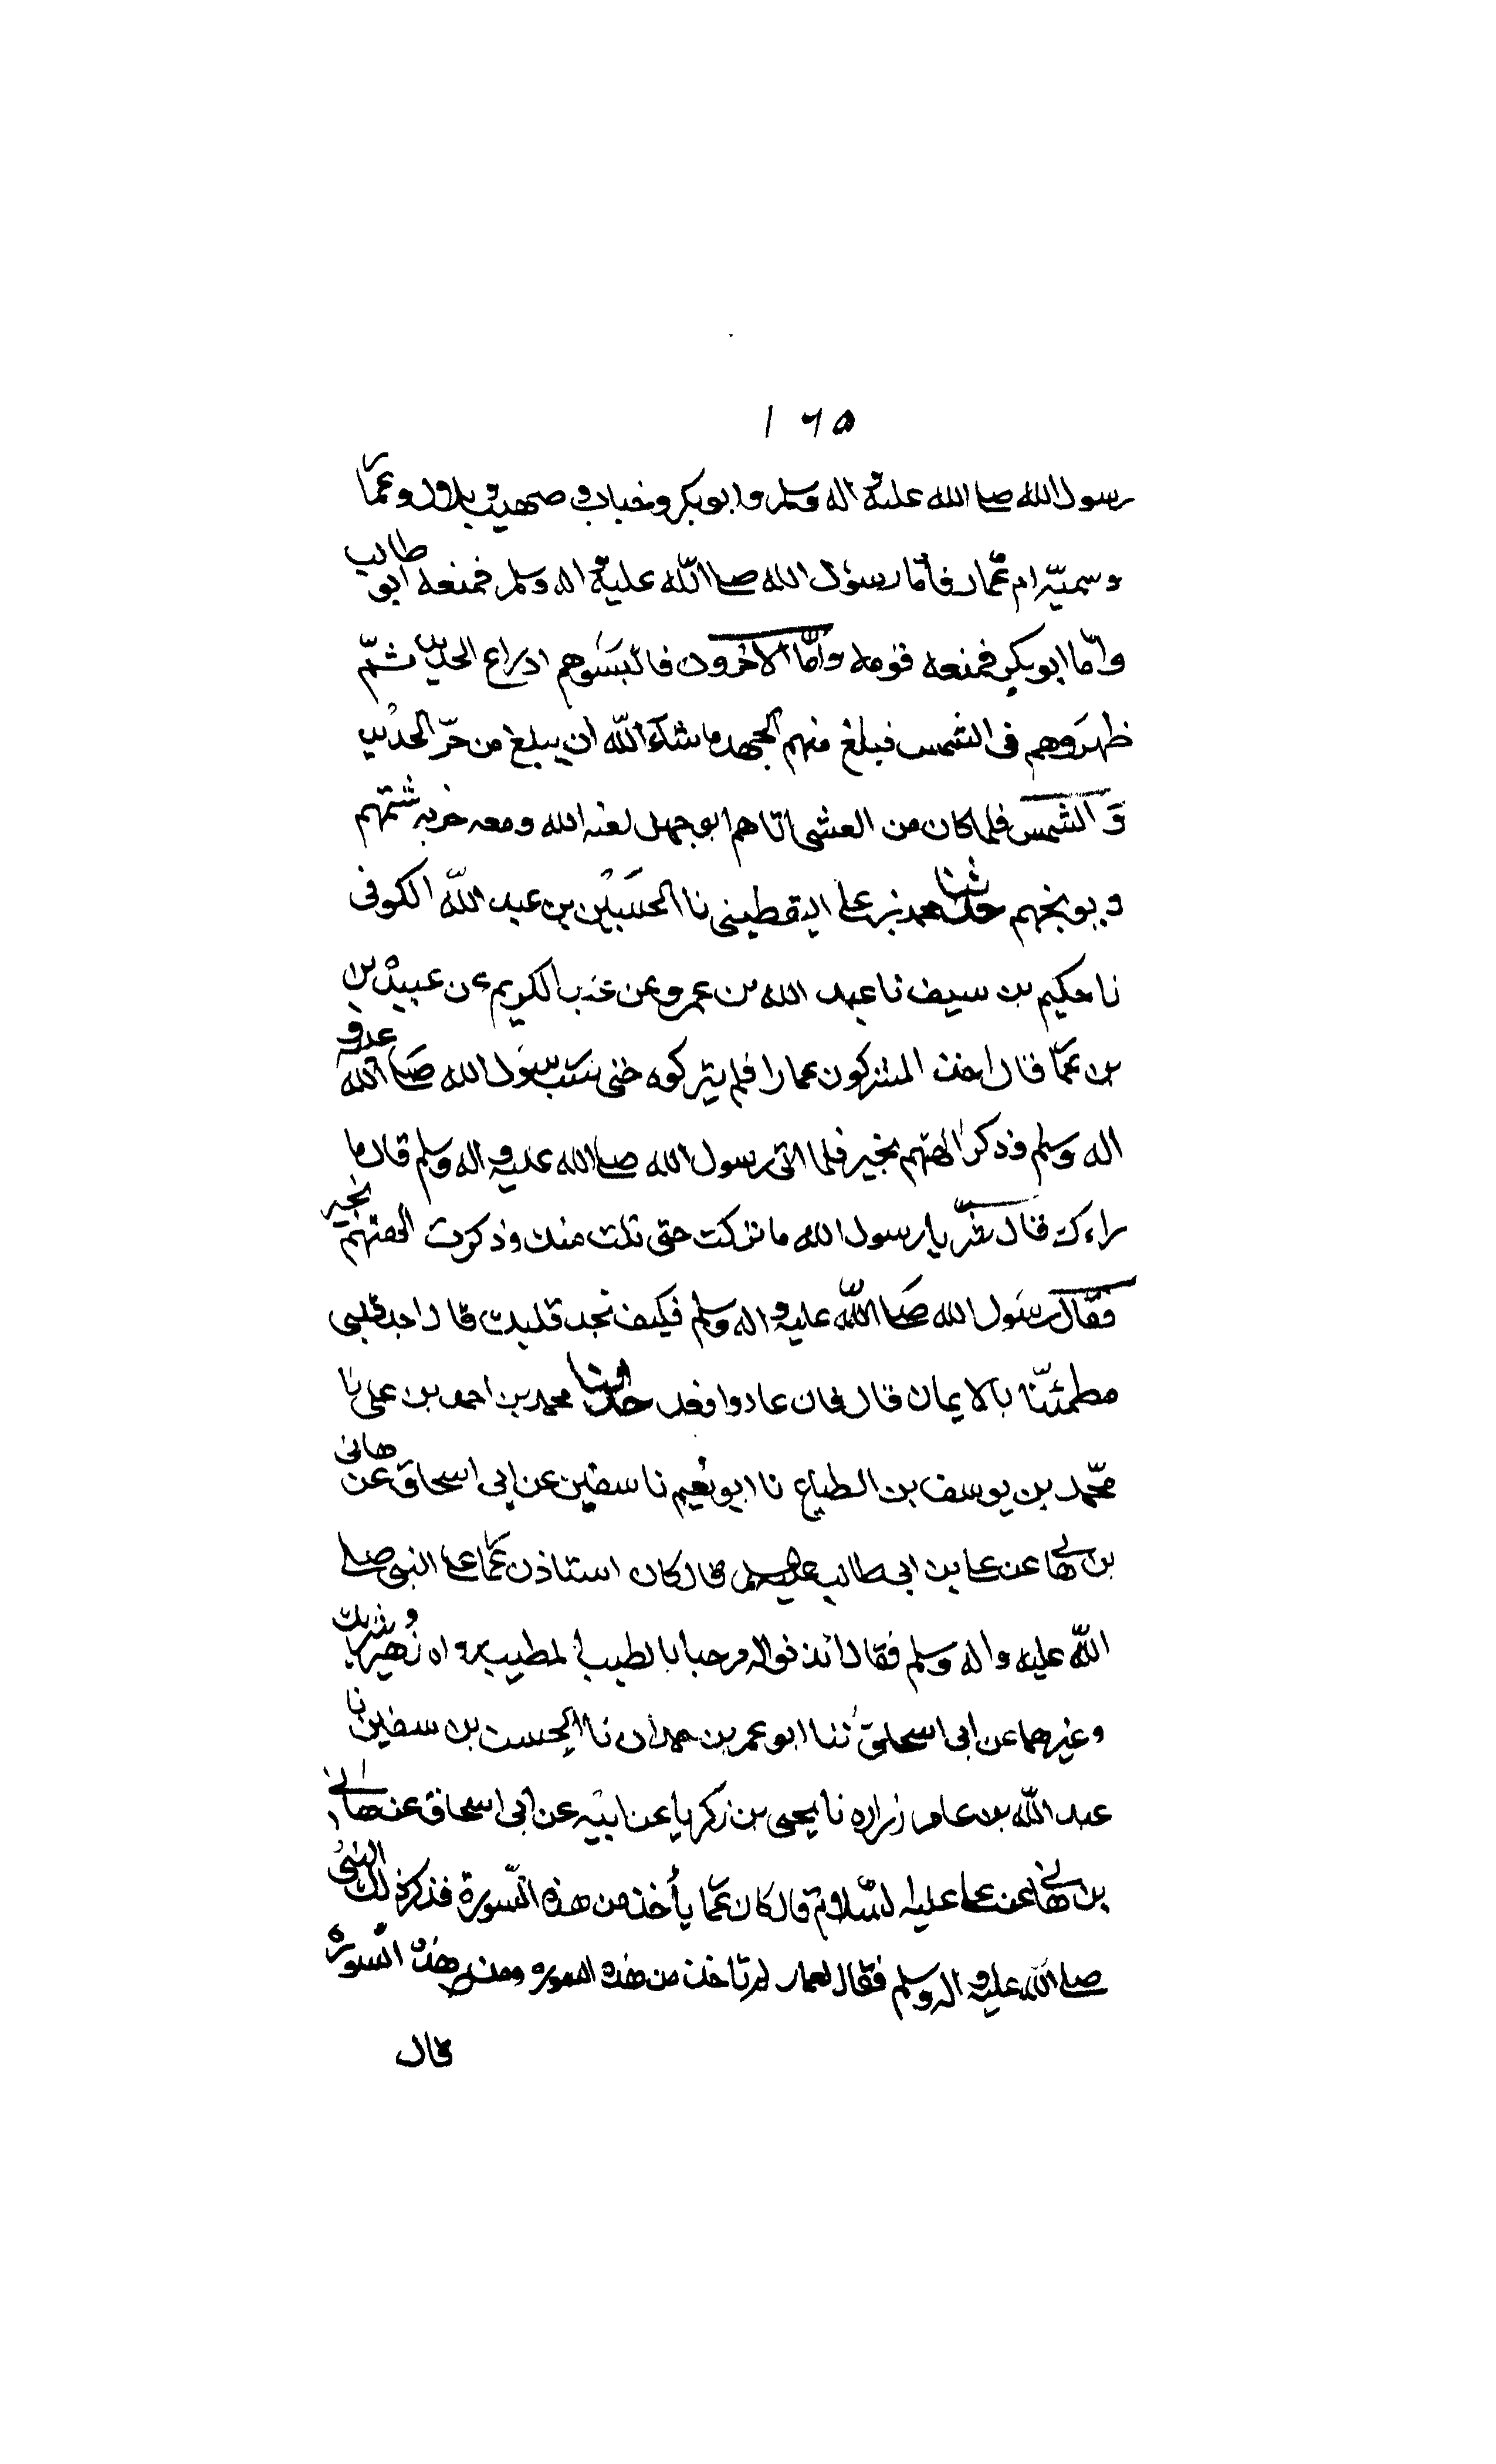 ١٦٥
رسول الله صلى الله عليه واله وسلم وابو بكر وخباب وصهيب وبلال وعمار
وسميّة ام عمّار فأمّا رسول الله صلى اللّه عليه واله وسلم فمنعه ابو طالب
وامّا ابو بكر فمنعه قومه وامّا الاخرون فالبسوهم ادراع الحديد ثمّ
ظهروهم فى الشمس فبلغ منهم الجهد ما شاء اللّه ان يبلغ من حرّ الحديد
و الشمس فلما كان من العشى اتاهم ابو جهل لعنه الله ومعه حربه شتمهم
ويوبخهم حدثنا محمد بن على اليقطينى نا الحسين بن عبد اللّه الكوفى
نا حكيم بن سيف نا عبيد الله بن عمرو عن عبد الكريم عن عبيدة بن
بن عمّار قال اخذ المشركون عمارا فلم يتركوه حتى سبّ رسول الله صلى اللّه عليه و
اله وسلم وذكر الهتهم بخير فلما اتى رسول الله صلى الله عليه واله وسلم قال ما
راءك قال شرّ يا رسول الله ما تركت حتى نلت منك وذكرت الهتهم بخير
فقال رسول الله صلى اللّه عليه واله وسلم فكيف تجد قلبك قال اجد قلبى
مطمئنّا بالايمان قال فان عادوا فعد حدثنا محمد بن احمد بن على نا
محمّد بن يوسف بن الطباع نا ابو نعيم نا سفين عن ابى اسحاق عن هانى
بن هانى عن على بن ابى طالب عليه السلم قال كان استاذن عمار على النبى صلى
اللّه عليه واله وسلم فقال ائذنوا له مرحبا بالطيب المطيب رواه زهير و شريك
وغيرهما عن ابى اسحاق ثنا ابو عمر بن حمدان نا الحسن بن سفين نا
عبد اللّه بن عامر زراره نا يحيى بن زكريا عن ابيه عن ابى اسحاق عن هانى
بن هانى عن على عليه السّلام قال كان عمّار يأخذ من هذه السّورة فذكر ذلك النبى
صلى اللّه عليه واله وسلم فقال لعمار لم تاخذ من هذه السورة ومن هذه السّورة
قال